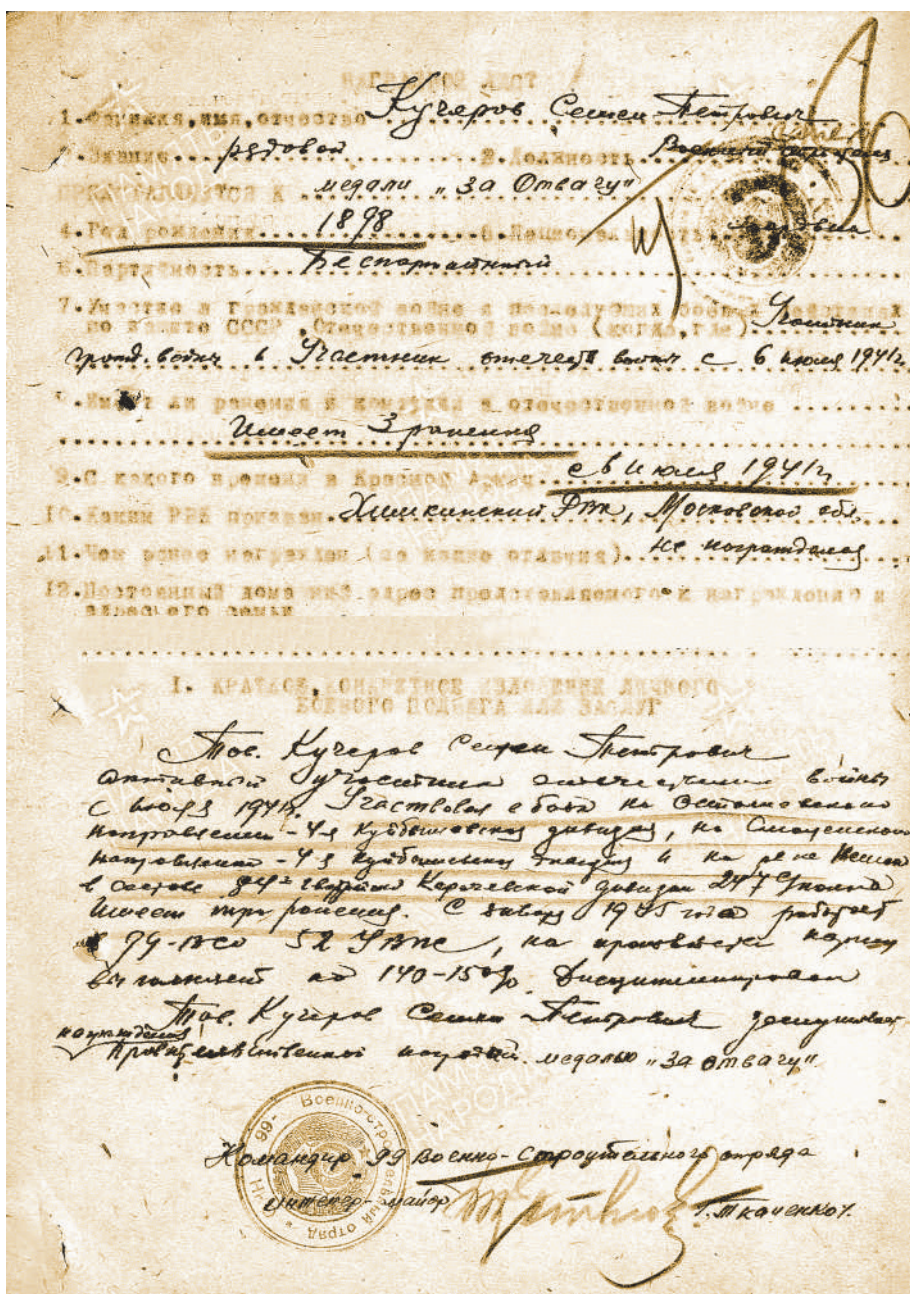 НАГРАДНОЙ ЛИСТ
1.Фамилия,имя,отчество Кучеров Семен Петрович
Звание.... рядовой .... Должность Военный строитель
ПРЕДСТАВЛЯЕТСЯ К медали „За Отвагу"
4.Год рождения 1898 Национальность мордвин
6.Партийность беспартийный
7.Участие в гражданской войне и последующих боевых действиях
по защите СССР, Отечественной войне (когда,где) Участник
гражд. войны и Участник отечеств войны с 6 июля 1941г
Имеет ли ранения и контузии в отечественной войне
Имеет 3 ранения
9.С какого времени в Красной Армии с 6 июля 1941г.
10.Каким РВК призван Химкинский РВК, Московской обл.
11.Чем ранее награжден (за какие отличия) не награждался
12.Постоянный домашний адрес представляемого к награждению и
адрес его семьи
I. КРАТКОЕ, КОНКРЕТНОЕ ИЗЛОЖЕНИЕ ЛИЧНОГО
БОЕВОГО ПОДВИГА ИЛИ ЗАСЛУГ
Тов. Кучеров Семен Петрович
активный участник отечествен войны
с июля 1941г. Участвовал в боях на
направлении - 4-я Куйбышевская дивизия, на Смоленском
направлении - 4-я Куйбышевская дивизия и на реке
в составе гвардейской Карачевской дивизии 247 полка
Имеет три ранения. С января 1945 года работает
в 99-ВСО 52 УВПС, на производстве норму
выполняет на 140-150%. Дисциплинирован
Тов. Кучеров Семен Петрович заслуживает
награждения
Правительственной наградой медалью „За отвагу"
99 - Военно-строительный отряд
Командир 99 Военно-Строительного отряда
Инженер-майор /Г.Ткаченко/.